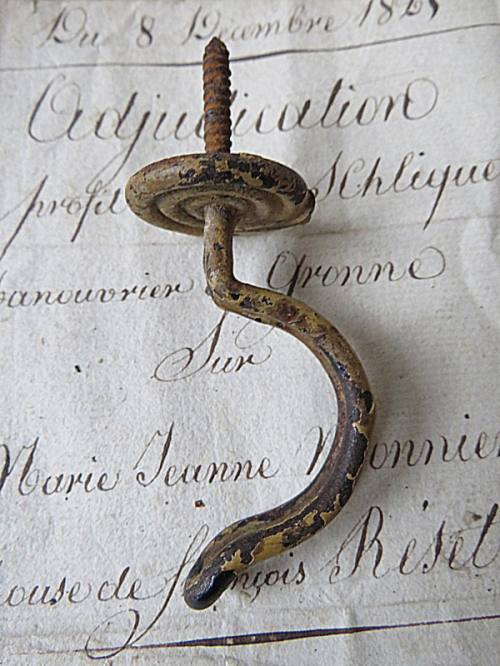 Du 8 Décembre 182
Adjudication
profit Schlique
manouvrier Gronne
Sur
Marie Jeanne Monnier
Epouse de françois Réset